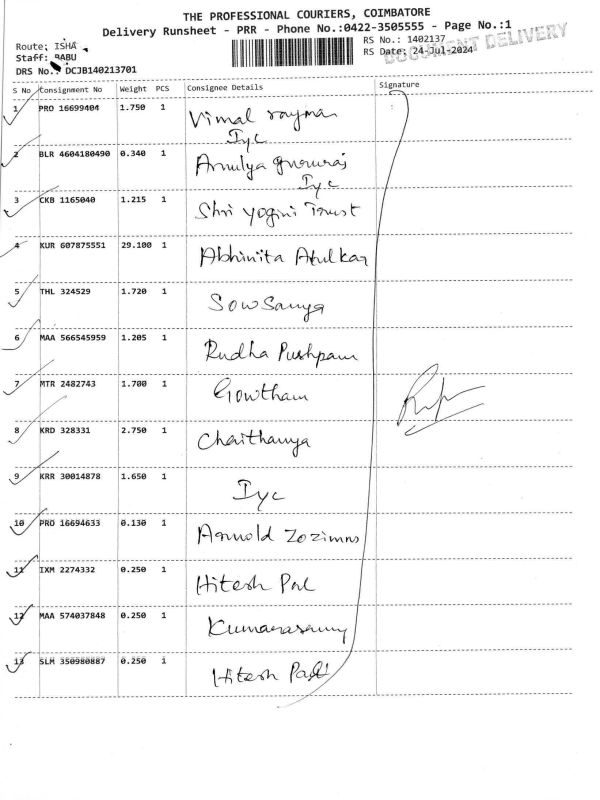 THE PROFESSIONAL COURIERS, COIMBATORE
Delivery Runsheet - PRR - Phone No.:0422-3505555 - Page No.:1
Route: ISHA
Staff: BABU
DRS No.: DCJB140213701
RS No.: 1402137
RS Date: 24-Jul-2024
DOCUMENT DELIVERY
S No Consignment No Weight PCS Consignee Details Signature
1 PRO 16699404 1.750 1 Vimal rayman
Iyc
2 BLR 4604180490 0.340 1 Amulya gururaj
Iyc
3 CKB 1165040 1.215 1 Shri yogini Trust
4 KUR 607875551 29.100 1 Abhinita Atulkar
5 THL 324529 1.720 1 Sowsanya
6 MAA 566545959 1.205 1 Rudha Pushpam
7 MTR 2482743 1.700 1 Gowtham
8 KRD 328331 2.750 1 Chaithanya
9 KRR 30014878 1.650 1 Iyc
10 PRO 16694633 0.130 1 Arnold Zozimus
11 IXM 2274332 0.250 1 Hitesh Pal
12 MAA 574037848 0.250 1 Kumarasamy
13 SLM 350980887 0.250 1 Hitesh